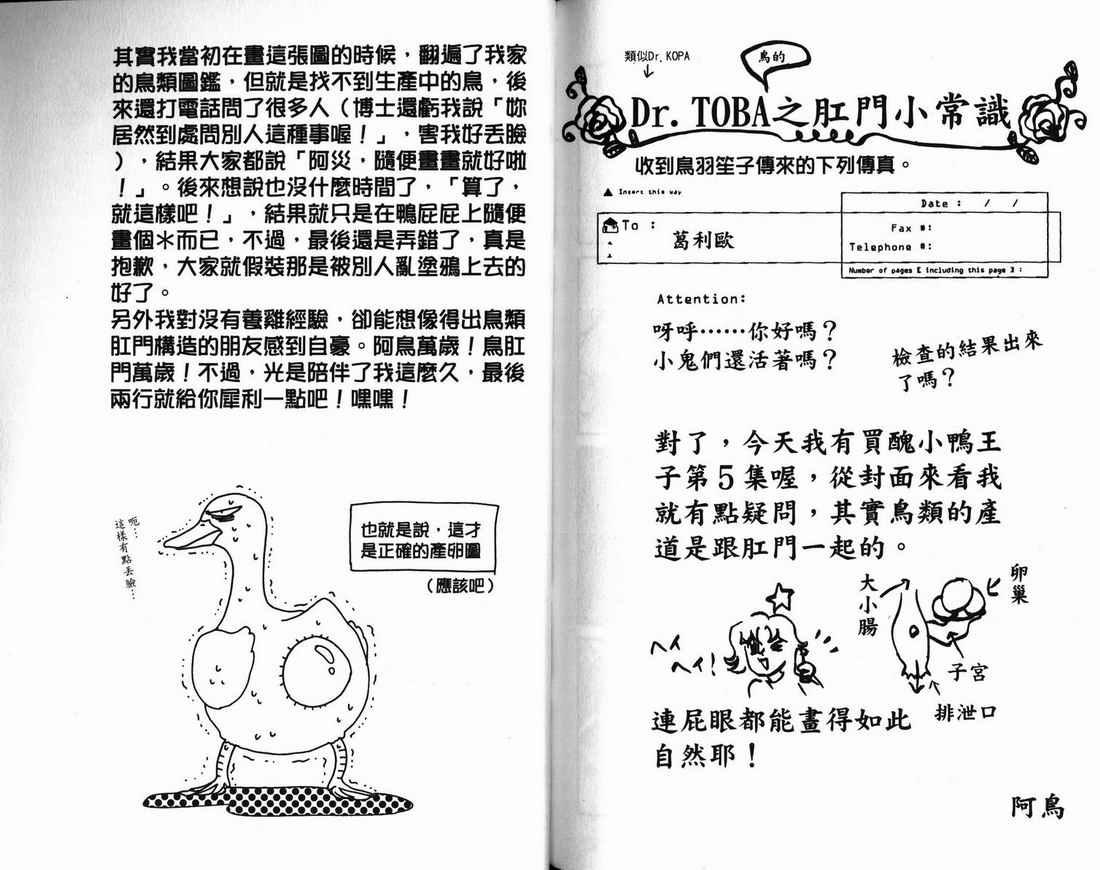 類似Dr. KOPA
鳥的
Dr. TOBA之肛門小常識
收到鳥羽笙子傳來的下列傳真。
▲ Insert this way
Date : / /
To :
葛利歐
Fax #:
Telephone #:
Number of pages [ including this page ] :
Attention:
呀呼……你好嗎？
小鬼們還活著嗎？
檢查的結果出來
了嗎？
對了，今天我有買醜小鴨王
子第5集喔，從封面來看我
就有點疑問，其實鳥類的產
道是跟肛門一起的。
大小腸
卵巢
子宮
排泄口
ヘイ
ヘイ！
連屁眼都能畫得如此
自然耶！
阿鳥
其實我當初在畫這張圖的時候，翻遍了我家
的鳥類圖鑑，但就是找不到生產中的鳥，後
來還打電話問了很多人（博士還虧我說「妳
居然到處問別人這種事喔！」，害我好丟臉
），結果大家都說「阿災，隨便畫畫就好啦
！」。後來想說也沒什麼時間了，「算了，
就這樣吧！」，結果就只是在鴨屁屁上隨便
畫個＊而已，不過，最後還是弄錯了，真是
抱歉，大家就假裝那是被別人亂塗鴉上去的
好了。
另外我對沒有養雞經驗，卻能想像得出鳥類
肛門構造的朋友感到自豪。阿鳥萬歲！鳥肛
門萬歲！不過，光是陪伴了我這麼久，最後
兩行就給你犀利一點吧！嘿嘿！
呃…
這樣有點丟臉…
也就是說，這才
是正確的產卵圖
（應該吧）